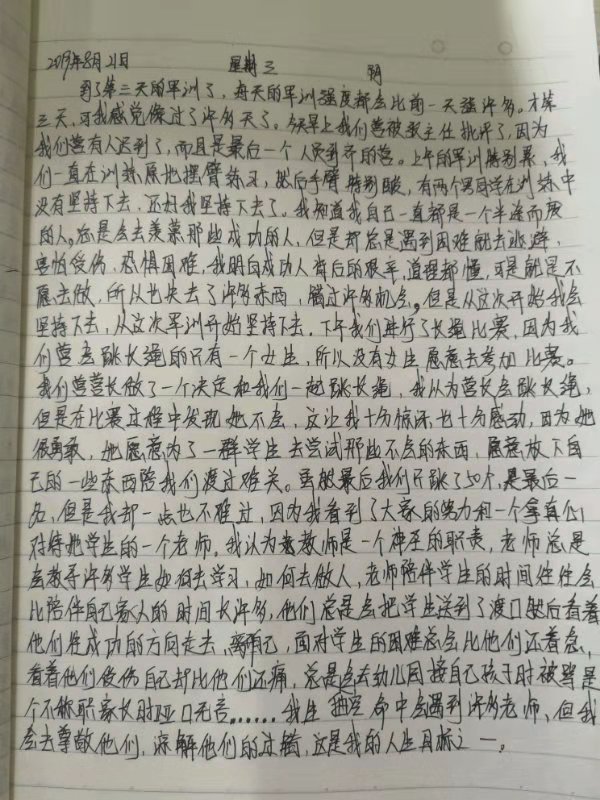 2019年8月21日 星期三 阴
到了第三天的军训了，每天的军训强度都会比前一天强许多。才第
三天，可我感觉像过了许多天了。今天早上我们营被教主任批评了，因为
我们营有人迟到了，而且是最后一个人员到齐的营。上午的军训特别累，我
们一直在训练原地摆臂练习，摆后手臂特别酸，有两个男同学在训练中
没有坚持下去，还好我坚持下去了。我知道我自己一直都是一个半途而废
的人。总是会去羡慕那些成功的人，但是却总是遇到困难就去逃避，
害怕受伤，恐惧困难，我明白成功人背后的艰辛，道理都懂，可是就是不
愿去做，所以也失去了许多东西，错过许多机会。但是从这次开始我会
坚持下去，从这次军训开始坚持下去。下午我们进行了长绳比赛，因为我
们营会跳长绳的只有一个女生，所以没有女生愿意去参加比赛。
我们营营长做了一个决定和我们一起跳长绳，我以为营长会跳长绳，
但是在比赛过程中发现她不会，这让我十分惊讶也十分感动，因为她
很勇敢，她愿意为了一群学生去尝试那些不会的东西，愿意放下自
己的一些东西陪我们渡过难关。虽然最后我们只跳了50个，是最后一
名，但是我却一点也不难过，因为我看到了大家的努力和一个拿真心
对待她学生的一个老师。我认为教师是一个神圣的职责，老师总是
会教导许多学生如何去学习，如何去做人，老师陪伴学生的时间往往会
比陪伴自己家人的时间长许多，他们总是会把学生送到了渡口然后看着
他们往成功的方向走去，离开自己，面对学生的困难总会比他们还着急，
看着他们受伤自己却比他们还痛，总是会去幼儿园接自己孩子时被骂是
个不称职家长时哑口无言……我生命中会遇到许多老师，但我
会去尊敬他们，谅解他们的过错，这是我的人生目标之一。